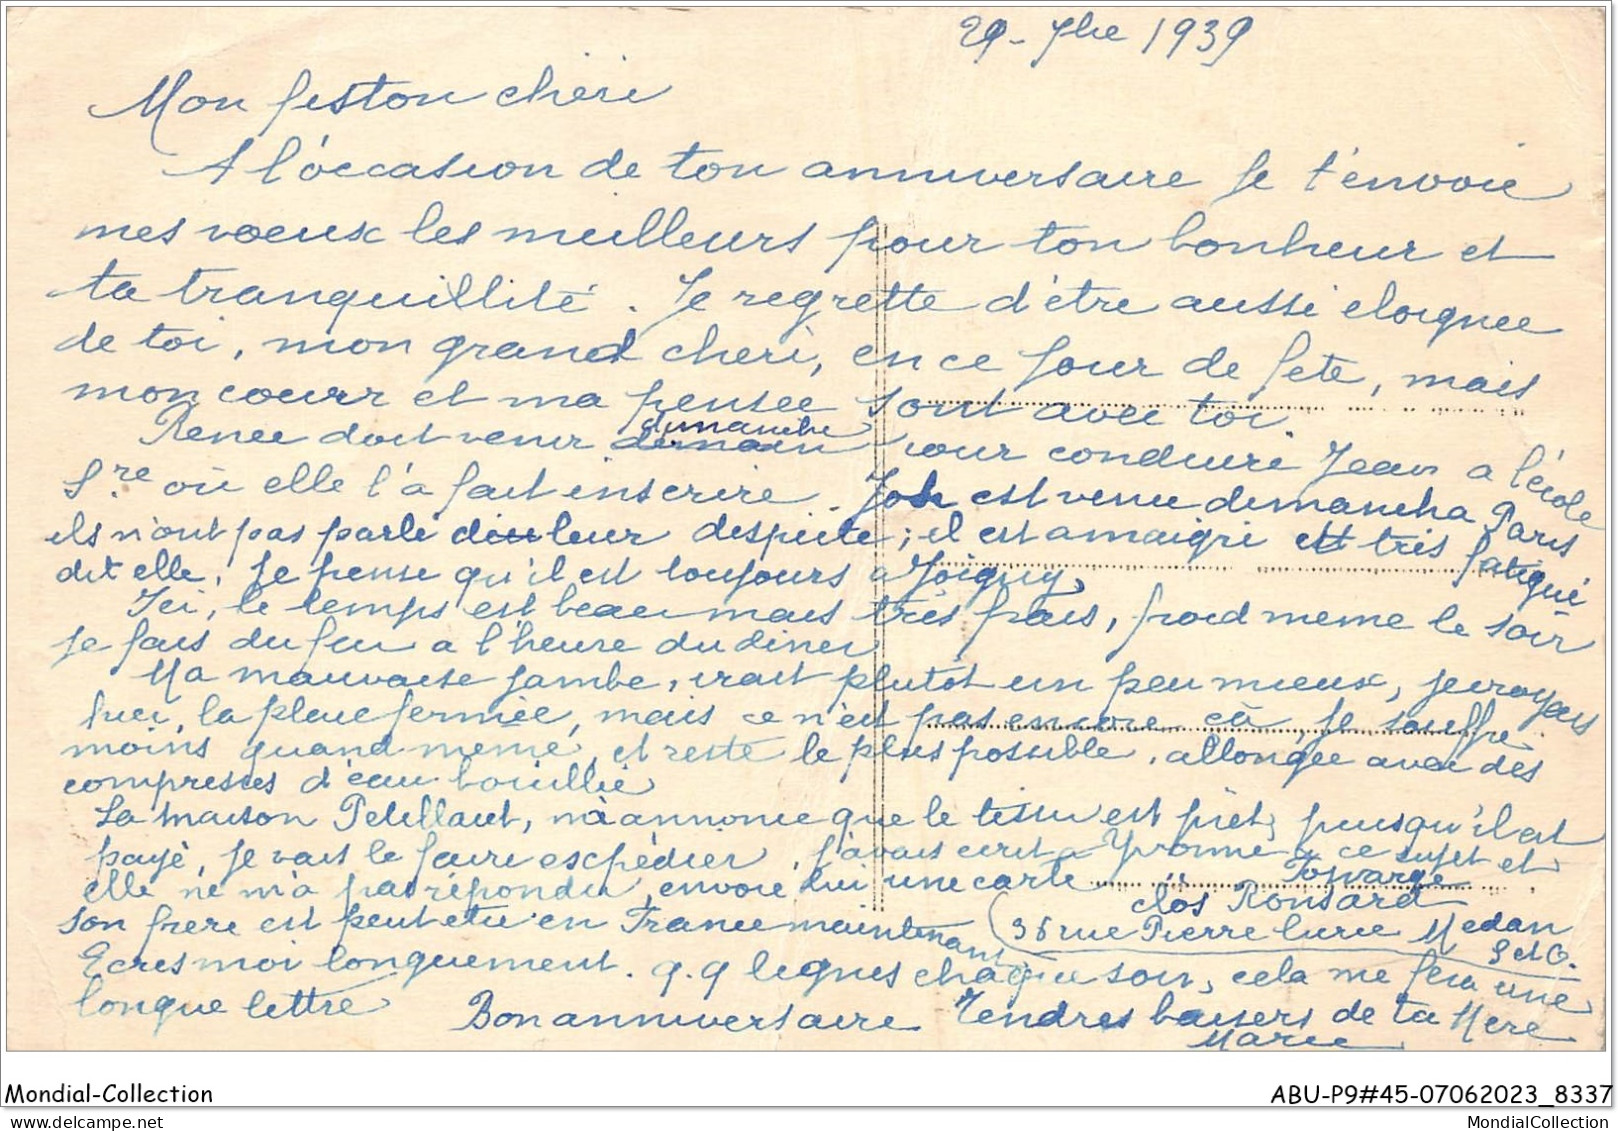 29 - 7bre 1939
Mon fiston chéri
A l'occasion de ton anniversaire je t'envoie
mes voeux les meilleurs pour ton bonheur et
ta tranquillité. Je regrette d'être aussi eloignee
de toi, mon grand cheri, en ce jour de fete, mais
mon coeur et ma pensee sont avec toi.
Renee doit venir dimanche pour conduire Jean a l'école
Sre où elle l'a fait inscrire. est venu dimanche a Paris
ils n'ont pas parlé de leur despute; il est amaigri et très fatigué
dit elle. Je pense qu'il est toujours a Joigny
Ici, le temps est beau mais très frais, froid meme le soir
je fais du feu a l'heure du diner
Ma mauvaise jambe, irait plutôt un peu mieux, je croyais
hier, la plaie fermée, mais ce n'est pas encore ça, je souffre
moins quand meme, et reste le plus possible, allongee avec des
compresses d'eau bouillie
La maison Petillaut, m'a annonce que le tissu est prêt, puisqu'il est
payé, je vais le faire expédier. J'avais ecrit a Yvonne a ce sujet et
elle ne m'a pas répondu, envoie lui une carte
clos Ronsard
son frere est peut etre en France maintenant (36 rue Pierre Curie Medan
S et O.
Ecris moi longuement. q.q lignes chaque soir, cela me fera une
longue lettre Bon anniversaire Tendres baisers de ta Mere
Marie
Mondial-Collection
ABU-P9#45-07062023_8337
www.mondial-collection.com
MondialCollection